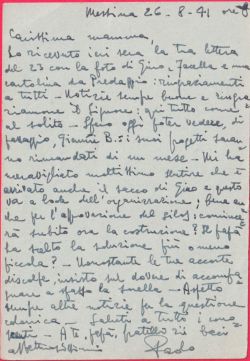 Messina 26-8-41 ore 8
Carissima mamma,
ho ricevuto ieri sera la tua lettera
del 23 con la foto di Gino, Joella e una
cartolina da Predappio: ringraziamenti
a tutti - Notizie sempre buone e ringra
ziamone il Signore; qui tutto come
al solito - Spero oggi poter vedere, di
passaggio, Gianni B.: i suoi progetti saran
no rimandati di un mese - Mi ha
meravigliato moltissimo sentire che è
arrivato anche il sacco di Gino e questo
va a lode dell'organizzazione; bene an
che per l'approvazione del silos; comince
rà subito ora la costruzione? Il papà
ha scelto la soluzione più o meno
piccola? - Nonostante le tue accorte
discolpe, insisto sul dovere di accompa
gnare a spasso la snella - Aspetto
sempre altre notizie su la questione
colonica - Saluti a tutti i cono
scenti - A te, papà, fratelli zie baci
affettuosissimi
Paolo